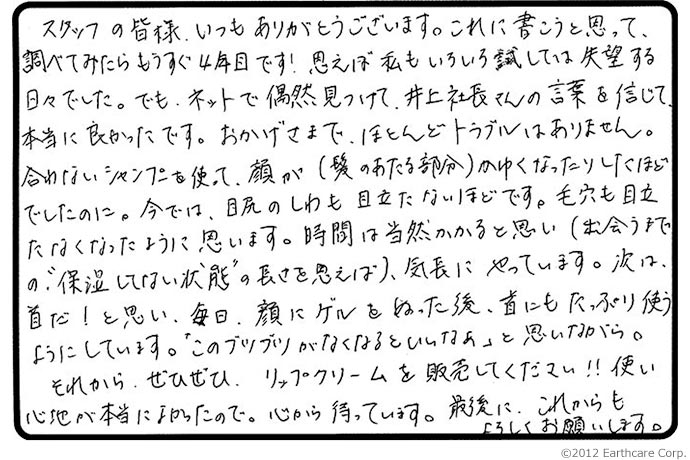 スタッフの皆様、いつもありがとうございます。これに書こうと思って、
調べてみたらもうすぐ4年目です！思えば私もいろいろ試しては失望する
日々でした。でも、ネットで偶然見つけて、井上社長さんの言葉を信じて、
本当に良かったです。おかげさまで、ほとんどトラブルはありません。
合わないシャンプーを使って、顔が(髪のあたる部分)かゆくなったりしたほど
でしたのに。今では、目尻のしわも目立たないほどです。毛穴も目立
たなくなったように思います。時間は当然かかると思い(出会うまで
の"保湿してない状態"の長さを思えば)、気長にやっています。次は、
首だ！と思い、毎日、顔にゲルをぬった後、首にもたっぷり使う
ようにしています。「このブツブツがなくなるといいなぁ」と思いながら。
それから、ぜひぜひ、リップクリームを販売してください!!使い
心地が本当によかったので。心から待っています。最後に、これからも
よろしくお願いします。
©2012 Earthcare Corp.